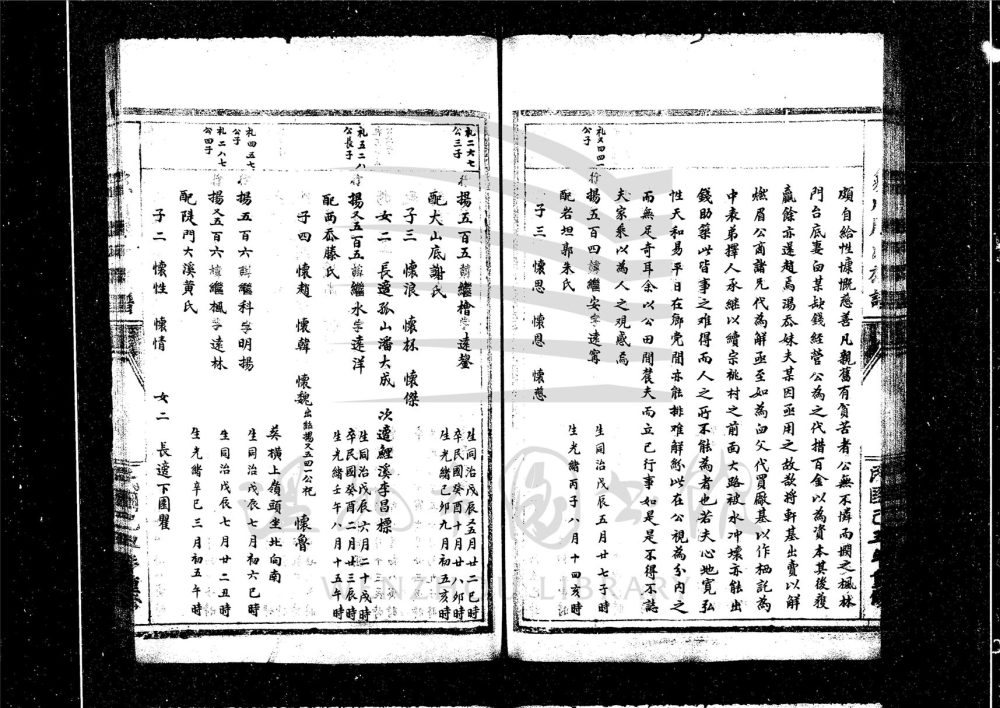 頎自給性慷慨慈善凡親舊有貧苦者公無不憐而賙之楓林
門台底妻白某缺錢經營公為之代措百金以為資本其後獲
贏餘亦還趙焉湯岙妹夫某因亟用之故欲將軒基出賣以解
燃眉公商諸兄代為解亟至如為白父代買厰基以作栖託為
中表弟擇人承繼以續宗祧村之前面大路被水冲壞亦能出
錢助築此皆事之难得而人之所不能為者也若夫心地寬弘
性天和易平日在鄉党間亦能排难解紛此在公視為分內之
而無足奇耳余以公田間農夫而立已行事如是是不得不誌
夫家乘以為人之观感焉
礼又四四一公子
行揚五百四 繼安字達寗
生同治戊辰五月廿七子時
配岩坦郭朱氏
生光緒丙子八月十四亥時
子三 懷恩 懷恩 懷慈
礼二六七公三子
行揚五百五 繼檜字達鋆
生同治戊辰五月廿二巳時
卒民國癸酉十月廿八卯時
配大山底謝氏
生光緒己卯九月初五亥時
子三 懷浪 懷杯 懷傑
女二 長適孤山潘大成 次適鯉溪李昌標
礼五二八公長子
行揚又五百五 繼水字達洋
生同治戊辰六月二十戌時
卒民國癸酉二月廿三辰時
配西岙藤氏
生光緒壬午八月十五午時
子四 懷趙 懷韓 懷魏出繼揚又五四一公祀 懷魯
葬橫上嶺頭坐北向南
礼四五七公子
行揚五百六 繼科字明揚
生同治戊辰七月初六巳時
礼二八七公四子
行揚又五百六 繼楓字達林
生同治戊辰七月廿二丑時
配陡門大溪黃氏
生光緒辛巳三月初五午時
子二 懷性 懷情 女二 長適下園瞿
溫州圖書館
WENZHOU LIBRARY